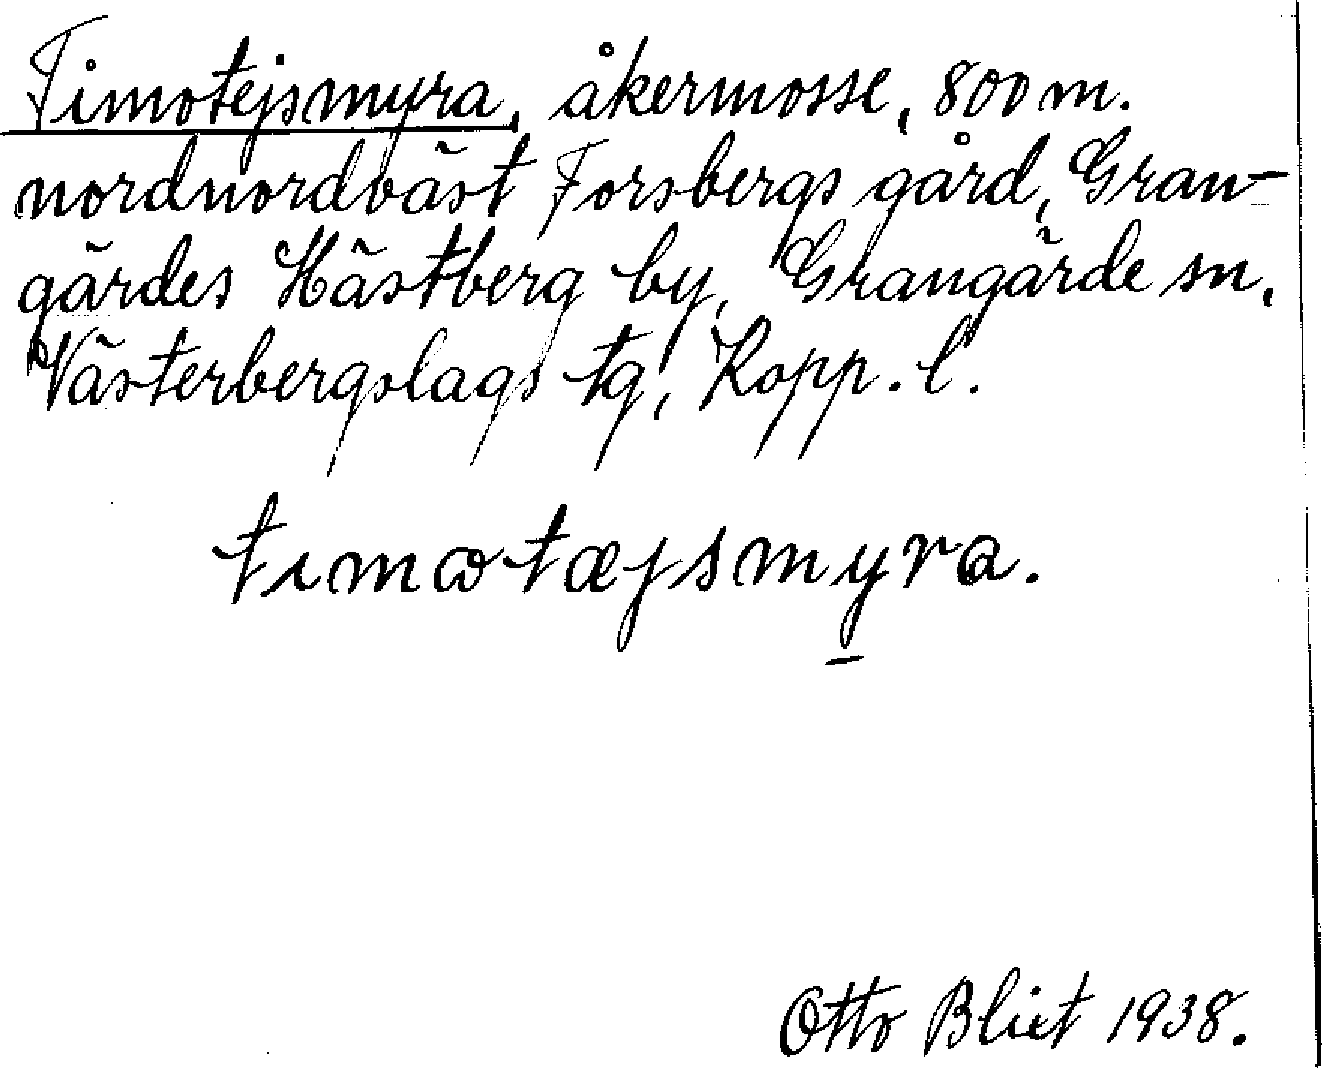 Timotejsmyra, åkermosse, 800 m.
nordnordväst Forsbergs gård, Gran-
gärdes Hästberg by, Grangärde sn,
Västerbergslags tg, Kopp. l.
timωtæjsmyra.
Otto Blixt 1938.